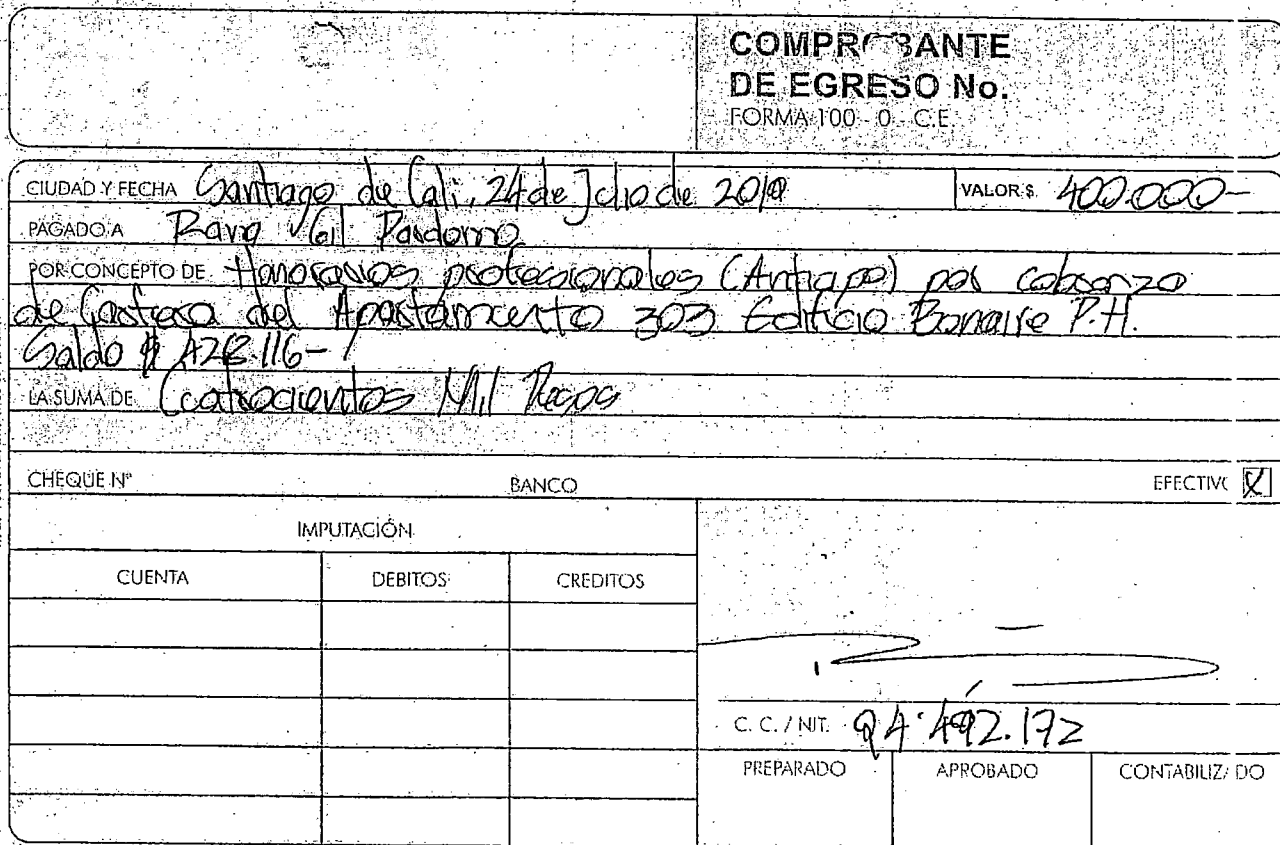 COMPROBANTE
DE EGRESO No.
FORMA 100 - 0 - C.E.
CIUDAD Y FECHA Santiago de Cali, 24 de Julio de VALOR $. 400.000-
PAGADO A Gil Perdomo
POR CONCEPTO DE Honorarios profesionales (Anticipo) por cobranza
de Cartera del Apartamento 303 Edificio Bonaire P.H.
Saldo $
LA SUMA DE Cuatrocientos Mil Pesos
CHEQUE Nº BANCO EFECTIVO X
IMPUTACIÓN
CUENTA DEBITOS CREDITOS
C. C. / NIT. 492.172
PREPARADO APROBADO CONTABILIZADO